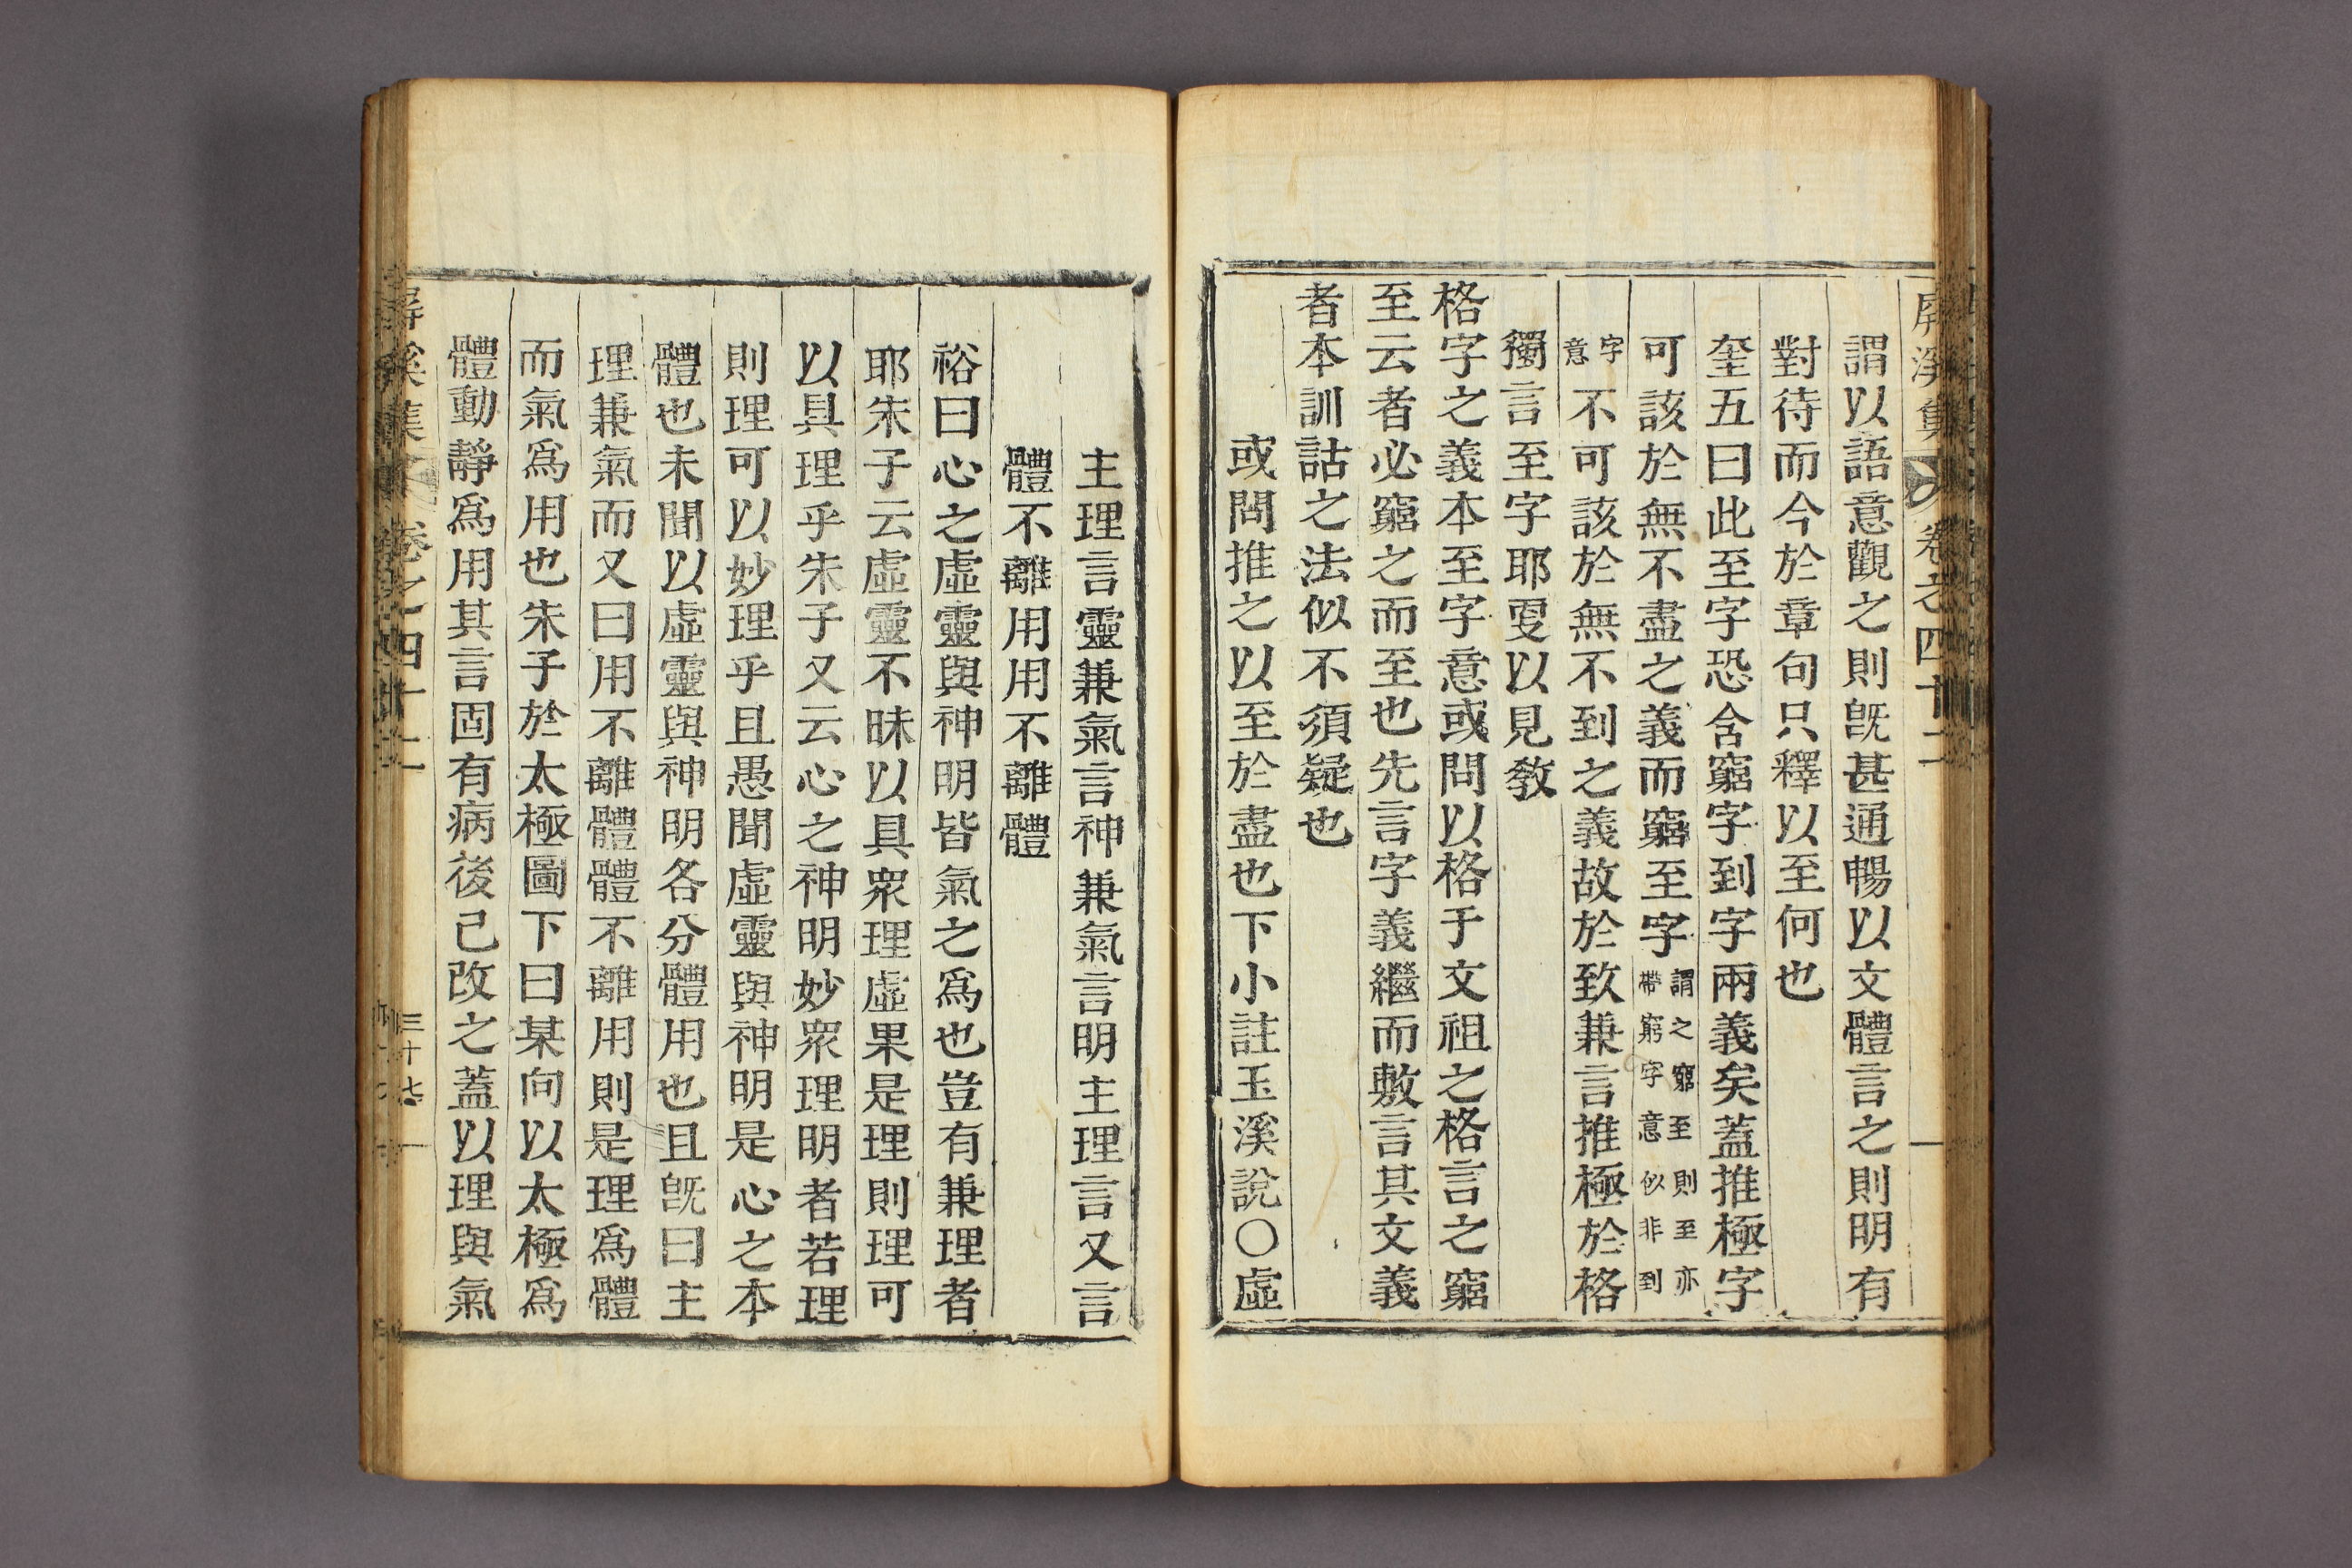 屏溪集 卷之四十二
謂以語意觀之則旣甚通暢以文體言之則明有
對待而今於章句只釋以至何也
奎五曰此至字恐含窮字到字兩義矣蓋推極字
可該於無不盡之義而窮至字謂之窮至則至亦帶窮字意似非到
字意不可該於無不到之義故於致兼言推極於格
獨言至字耶更以見敎
格字之義本至字意或問以格于文祖之格言之窮
至云者必窮之而至也先言字義繼而敷言其文義
者本訓詁之法似不須疑也
或問推之以至於盡也下小註玉溪說〇虛
主理言靈兼氣言神兼氣言明主理言又言
體不離用用不離體
裕曰心之虛靈與神明皆氣之爲也豈有兼理者
耶朱子云虛靈不昧以具衆理虛果是理則理可
以具理乎朱子又云心之神明妙衆理明者若理
則理可以妙理乎且愚聞虛靈與神明是心之本
體也未聞以虛靈與神明各分體用也且旣曰主
理兼氣而又曰用不離體體不離用則是理爲體
而氣爲用也朱子於太極圖下曰某向以太極爲
體動靜爲用其言固有病後已改之蓋以理與氣
屏溪集 卷之四十二 三十七